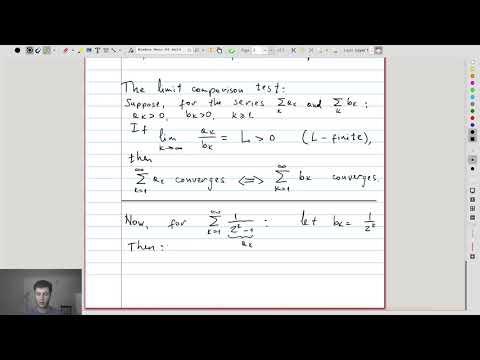 The limit comparison test:
Suppose, for the series Σ_k aₖ and Σ_k bₖ:
aₖ > 0, bₖ > 0, k ≥ 1.
If lim_{k→∞} aₖ/bₖ = L > 0 (L - finite),
then
Σ_{k=1}^∞ aₖ converges ⟺ Σ_{k=1}^∞ bₖ converges.
Now, for Σ_{k=1}^∞ 1/(2ᵏ-1) : let bₖ = 1/2ᵏ
aₖ
Then: